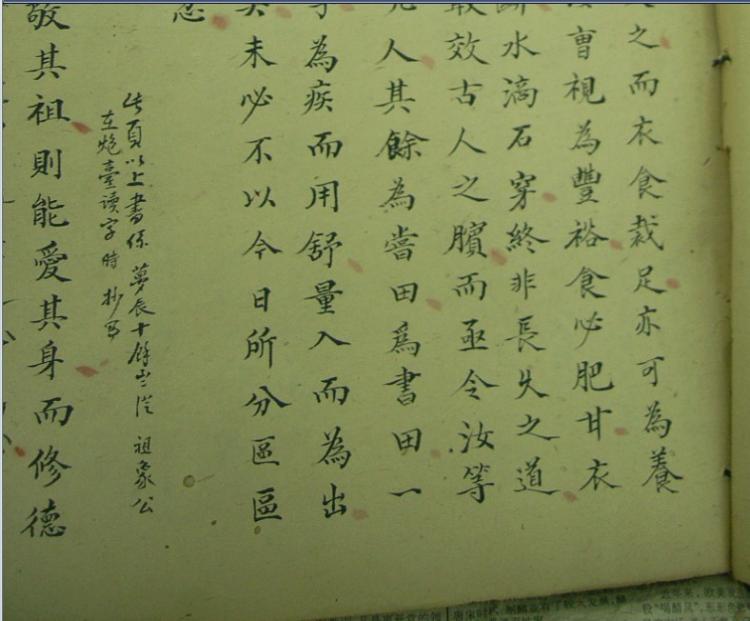 之而衣食裁足亦可為養
曹視為豐裕食必肥甘衣
斷水滴石穿終非長久之道
敢效古人之臏而亟令汝等
人其餘為嘗田為書田一
為疾而用舒量入而為出
未必不以今日所分區區
忍
此頁以上書係夢辰十餘岁從祖象公
在炮臺讀字時抄写
敬其祖則能愛其身而修德